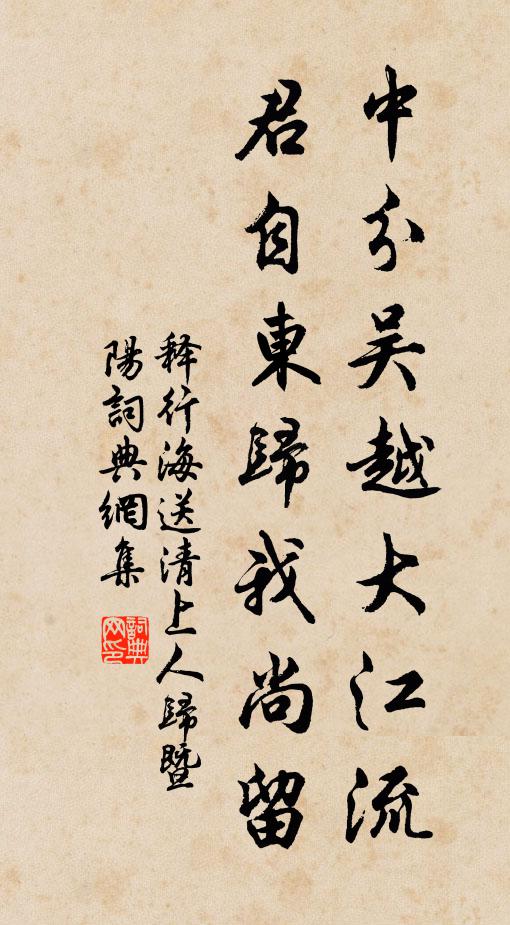 中分吴越大江流
君自東歸我尚留
释行海送清上人歸暨
陽詞典網集
詞典
网印